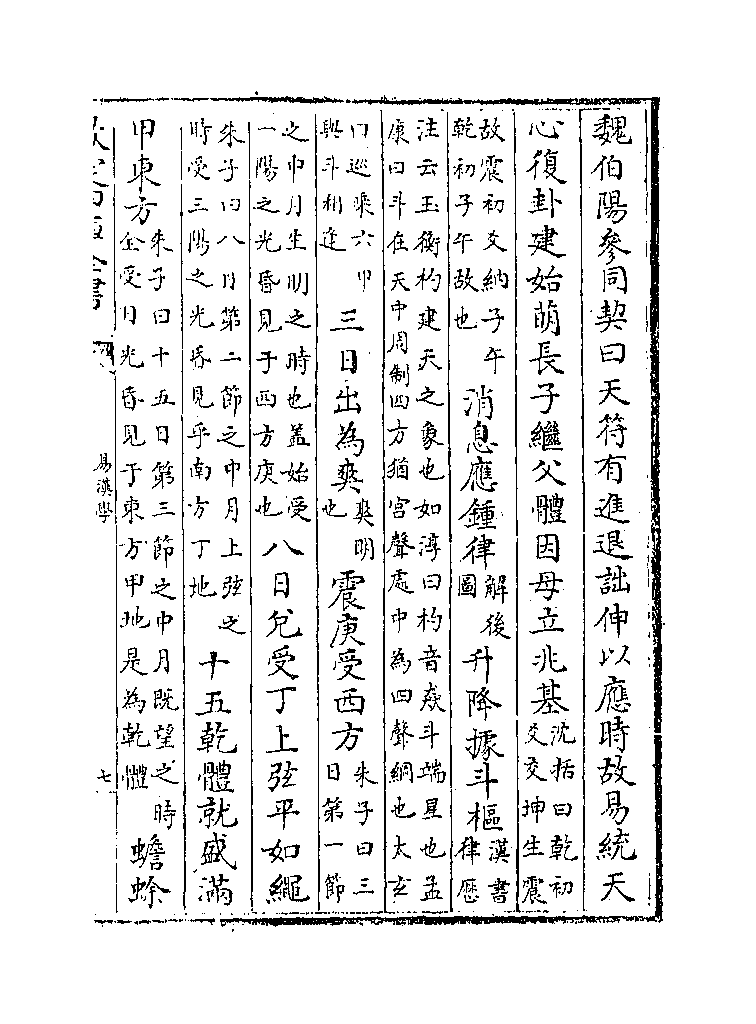 魏伯陽參同契曰天符有進退詘伸以應時故易統天
心復卦建始萌長子繼父體因母立兆基沈括曰乾初爻交坤生震
故震初爻納子午乾初子午故也消息應鍾律解後圖升降據斗樞漢書律歷
注云玉衡杓建天之象也如淳曰杓音猋斗端星也孟康曰斗在天中周制四方猶宮聲處中為四聲綱也太玄
曰巡乘六甲與斗相逢三日出為爽爽明也震庚受西方朱子曰三日第一節
之中月生明之時也蓋始受一陽之光昏見于西方庚也八日兌受丁上弦平如繩
朱子曰八日第二節之中月上弦之時受三陽之光昏見乎南方丁地十五乾體就盛滿
甲東方朱子曰十五日第三節之中月既望之時全受日光昏見于東方甲地是為乾體蟾蜍
易漢學
七